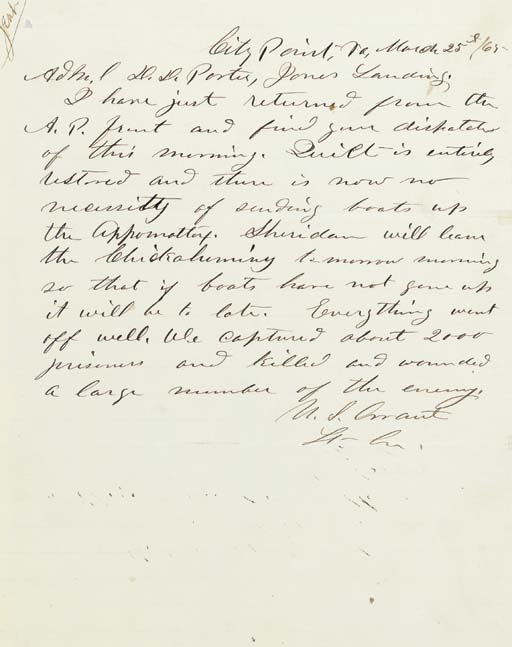 Sent.
City Point, Va, March 25th /65
Adml D. D. Porter, Jones Landing,
I have just returned from the
A. P. front and find your dispatch
of this morning. Quiet is entirely
restored and there is now no
necessity of sending boats up
the Appomattox. Sheridan will leave
the Chickahominy tomorrow morning
so that if boats have not gone up
it will be to late. Everything went
off well. We captured about 2000
prisoners and killed and wounded
a large number of the enemy.
U. S. Grant
Lt. Gn.